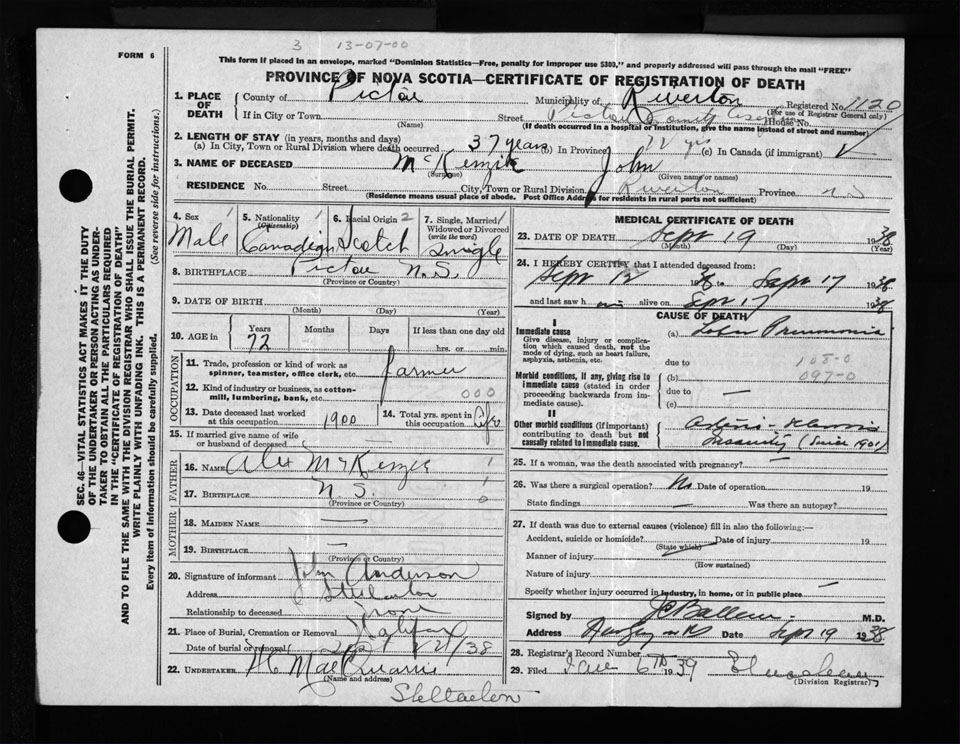 3 13-07-00
FORM 6
This form if placed in an envelope, marked "Dominion Statistics—Free, penalty for improper use $300," and properly addressed will pass through the mail "FREE"
PROVINCE OF NOVA SCOTIA—CERTIFICATE OF REGISTRATION OF DEATH
1. PLACE OF DEATH County of Pictou Municipality of Riverton Registered No. 1120
(For use of Registrar General only)
If in City or Town Street Pictou County House No.
(Name) (If death occurred in a hospital or institution, give the name instead of street and number)
2. LENGTH OF STAY (in years, months and days)
(a) In City, Town or Rural Division where death occurred 37 years (b) In Province 72 yrs (c) In Canada (if immigrant)
3. NAME OF DECEASED McKenzie John
(Surname) (Given name or names)
RESIDENCE No. Street City, Town or Rural Division Riverton Province N.S.
(Residence means usual place of abode. Post Office Address for residents in rural parts not sufficient)
SEC. 46—VITAL STATISTICS ACT MAKES IT THE DUTY
OF THE UNDERTAKER OR PERSON ACTING AS UNDER-
TAKER TO OBTAIN ALL THE PARTICULARS REQUIRED
IN THE "CERTIFICATE OF REGISTRATION OF DEATH"
AND TO FILE THE SAME WITH THE DIVISION REGISTRAR WHO SHALL ISSUE THE BURIAL PERMIT.
WRITE PLAINLY WITH UNFADING INK. THIS IS A PERMANENT RECORD.
Every item of information should be carefully supplied. (See reverse side for instructions.)
4. Sex 1 5. Nationality 1 6. Racial Origin 2 7. Single, Married, Widowed or Divorced (write the word) 1
Male Canadian Scotch Single
8. BIRTHPLACE Pictou N.S.
(Province or County)
9. DATE OF BIRTH
(Month) (Day) (Year)
10. AGE in Years Months Days If less than one day old
72 hrs. or min.
OCCUPATION
11. Trade, profession or kind of work as spinner, teamster, office clerk, etc. Farmer
12. Kind of industry or business, as cotton-mill, lumbering, bank, etc. 000
13. Date deceased last worked at this occupation 1900 14. Total yrs. spent in this occupation Life
15. If married give name of wife or husband of deceased
FATHER
16. NAME Alex McKenzie 1
17. BIRTHPLACE N.S. 1
(Province or County) 0
MOTHER
18. MAIDEN NAME —
19. BIRTHPLACE —
(Province or Country)
20. Signature of informant John Anderson
Address Stellarton
Relationship to deceased None
21. Place of Burial, Cremation or Removal
Date of burial or removal 21/38
22. UNDERTAKER
(Name and address)
MEDICAL CERTIFICATE OF DEATH
23. DATE OF DEATH Sept 19 1938
(Month) (Day)
24. I HEREBY CERTIFY that I attended deceased from:
Sept 12 1938 to Sept 17 1938
and last saw him alive on Sept 17 1938
CAUSE OF DEATH
I
Immediate cause (a) Lobar Pneumonia
Give disease, injury or complication which caused death, not the mode of dying, such as heart failure, asphyxia, asthenia, etc.
due to 108-0
Morbid conditions, if any, giving rise to immediate cause (stated in order proceeding backwards from immediate cause).
(b) 097-0
due to —
(c)
II
Other morbid conditions (if important) contributing to death but not causally related to immediate cause.
Insanity (Since 1901)
25. If a woman, was the death associated with pregnancy? —
26. Was there a surgical operation? No Date of operation 19
State findings — Was there an autopsy?
27. If death was due to external causes (violence) fill in also the following:—
Accident, suicide or homicide? Date of injury 19
(State which)
Manner of injury
(How sustained)
Nature of injury
Specify whether injury occurred in industry, in home, or in public place —
Signed by M.D.
Address Date Sept 19 1938
28. Registrar's Record Number
29. Filed 6th 1939
(Division Registrar)